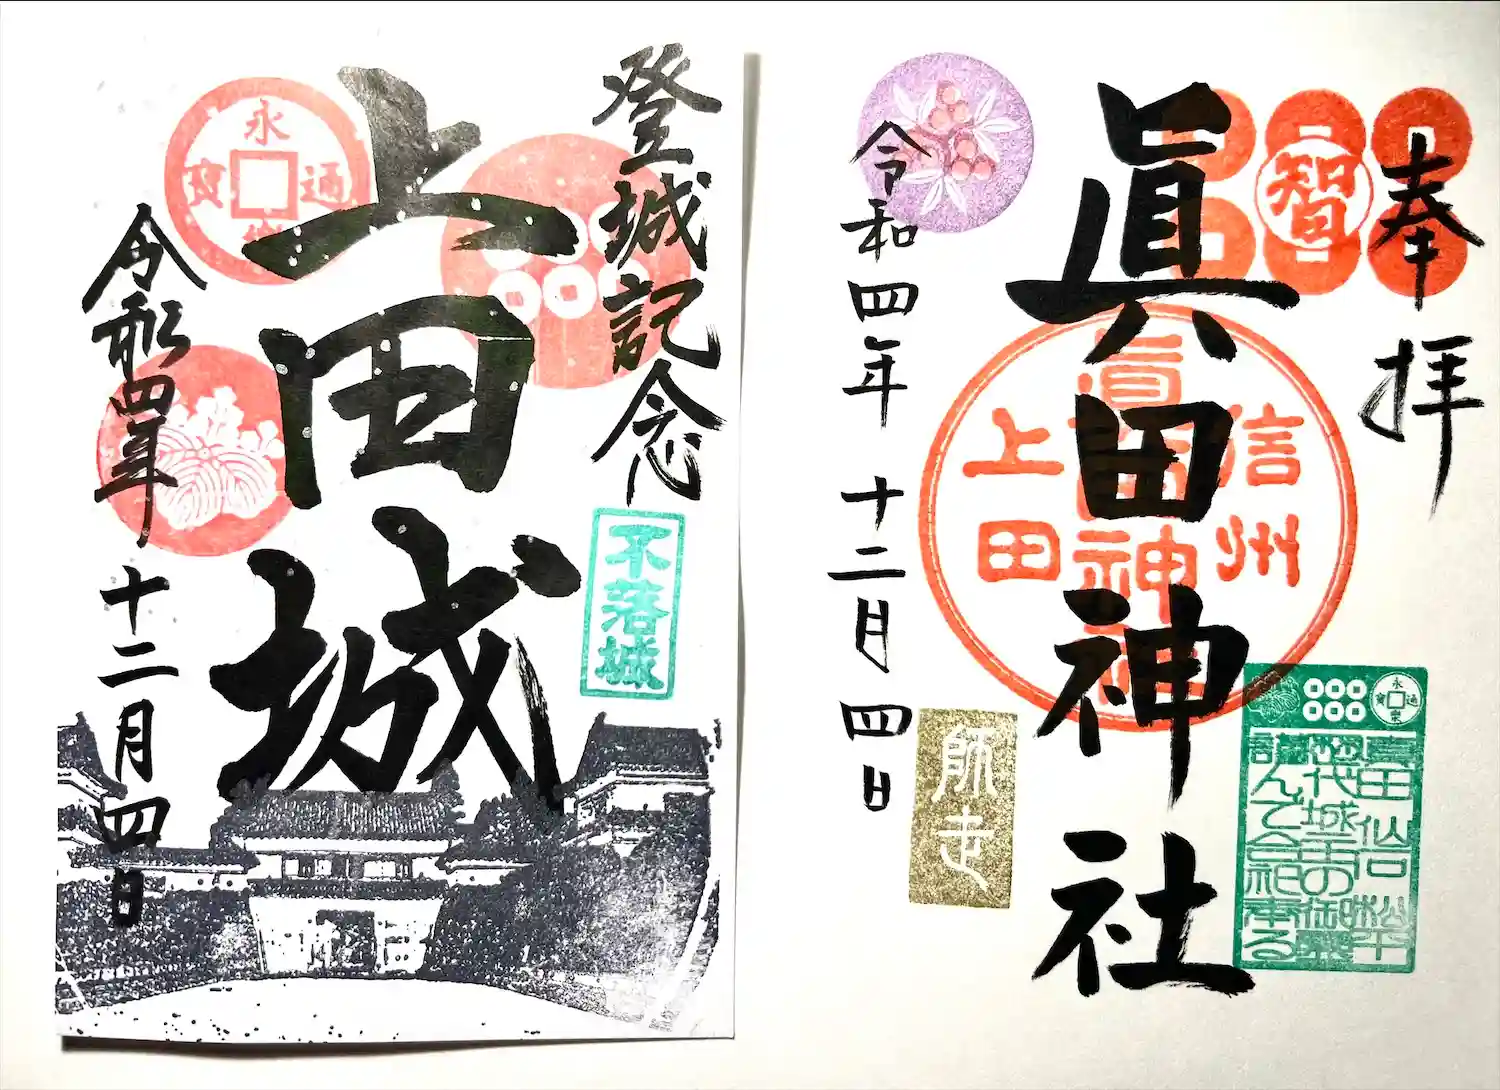 奉拝
智
眞田神社
信州
眞田神社
上田
令和四年 十二月四日
師走
永樂通寳
真田 仙石 松平
歴代城主の御霊
謹んで合祀奉る
登城記念
上田城
永樂通寳
不落城
令和四年 十二月四日